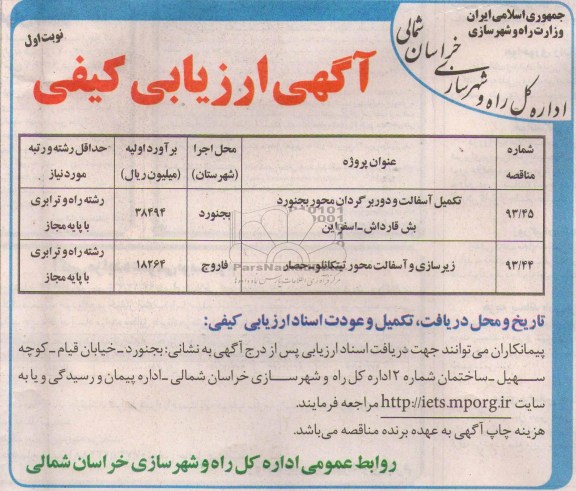 جمهوری اسلامی ایران
وزارت راه و شهرسازی
اداره کل راه و شهرسازی خراسان شمالی
نوبت اول
آگهی ارزیابی کیفی
شماره مناقصه
عنوان پروژه
محل اجرا (شهرستان)
برآورد اولیه (میلیون ریال)
حداقل رشته و رتبه مورد نیاز
۹۳/۴۵
تکمیل آسفالت و دوربرگردان محور بجنورد
بش قارداش ـ اسفراین
بجنورد
۳۸۴۹۴
رشته راه و ترابری
با پایه مجاز
۹۳/۴۴
زیرسازی و آسفالت محور تیتکانلو ـ حصار
فاروج
۱۸۲۶۴
رشته راه و ترابری
با پایه مجاز
تاریخ و محل دریافت، تکمیل و عودت اسناد ارزیابی کیفی:
پیمانکاران می توانند جهت دریافت اسناد ارزیابی پس از درج آگهی به نشانی: بجنورد ـ خیابان قیام ـ کوچه
سهیل ـ ساختمان شماره ۲ اداره کل راه و شهرسازی خراسان شمالی ـ اداره پیمان و رسیدگی و یا به
سایت http://iets.mporg.ir مراجعه فرمایند.
هزینه چاپ آگهی به عهده برنده مناقصه می‌باشد.
روابط عمومی اداره کل راه و شهرسازی خراسان شمالی